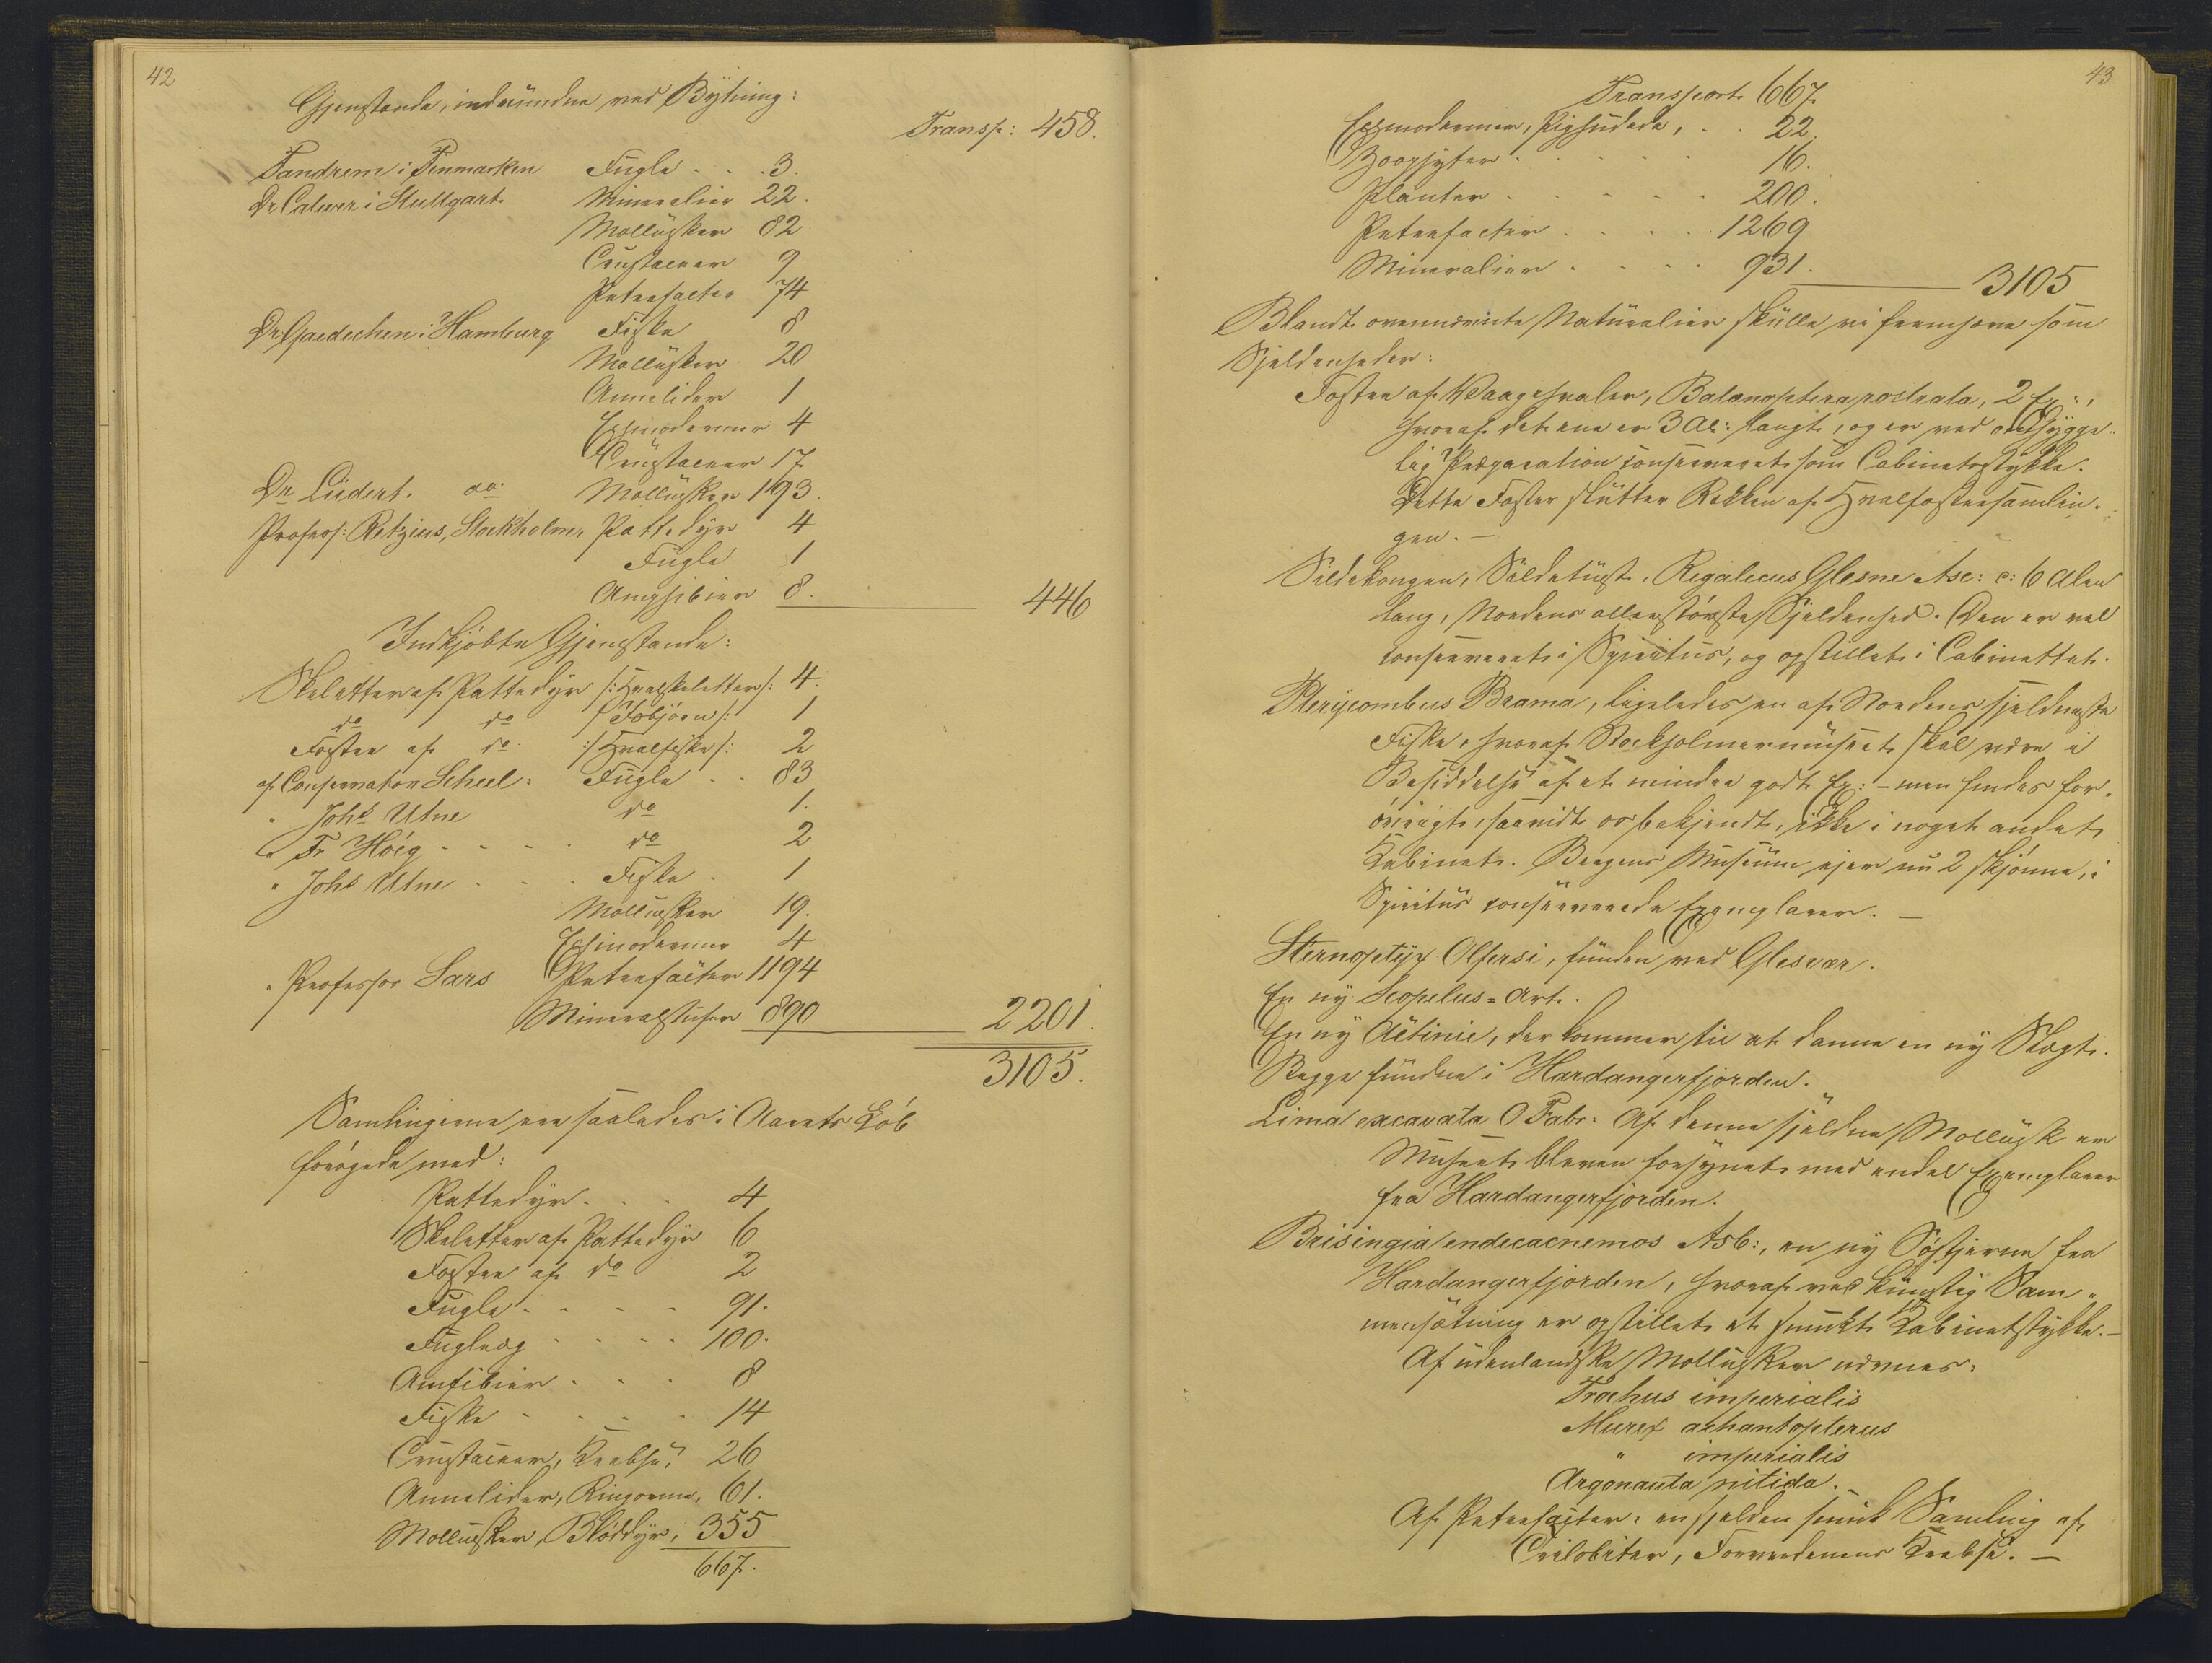 42
Gjenstande, indvundne ved Bytning:
Transp: 458.
Tandrem i Finmarken Fugle . . . 3.
Dr Calwer i Stuttgart Mineralier 22.
Mollusker 82
Crustaceer 9
Petrefacter 74
Dr. Gaedechen i Hamburg Fiske 8
Mollusker 20
Annelider 1
Echinodermer 4
Crustaceer 17
Dr Lüdert. do: Mollusker 193.
Profess: Retzius, Stockholm, Pattedyr 4
Fugle 1
Amphibier 8. 446
Indkjöbte Gjenstande:
Skeletter af Pattedyr /:Hvalskeletter:/ 4.
do do /:Isbjörn:/ 1
Foster af do /:Hvalfiske:/ 2
af Conservator Scheel: Fugle . . 83
" Johs Utne do 1.
" Fr Höeg . . . . do 2
" Johs Utne . . . Fiske . 1
Mollusker 19.
Echinodermer 4
" Professor Sars Petrefacter 1194
Mineralstufer 890 2201.
3105.
Samlingerne ere saaledes i Aarets Löb
forögede med:
Pattedyr . . . 4
Skeletter af Pattedyr 6
Foster af do 2
Fugle . . . . 91.
Fugleæg . . . . 100.
Amfibier . . . 8
Fiske . . . . 14
Crustaceer, Krebse, 26
Annelider, Ringorme, 61.
Mollusker, Blöddyr, 355
667.
43
Transport 667
Echinodermer, Pighudede, . . 22.
Zoophyter . . . . . 16.
Planter . . . . . 200.
Petrefacter . . . . 1269
Mineralier . . . . 931. 3105
Blandt ovennævnte Naturalier skulle vi fremhæve som
Sjeldenheder:
Foster af Vaagehvaler, Balænoptera rostrata, 2 Ex:,
hvoraf det ene er 3 Al: langt, og er ved omhygge-
lig Præparation conserveret som Cabinetsstykke.
Dette Foster slutter Rækken af Hvalfostersamlin-
gen. —
Sildekongen, Sildetust, Regalecus Glesne Asc: c: 6 Alen
lang, Nordens allerstörste Sjeldenhed. Den er vel
conserveret i Spiritus, og opstillet i Cabinettet.
Pterycombus Brama, ligeledes en af Nordens sjeldneste
Fiske, hvoraf Stockholmermuseet skal være i
Besiddelse af et mindre godt Ex: – men findes for-
övrigt, saavidt os bekjendt, ikke i noget andet
Kabinet. Bergens Museum ejer nu 2 skjönne, i
Spiritus conserverede Exemplarer. —
Sternoptyx Olfersi, funden ved Glesvær.
En ny Scopelus=Art.
En ny Actinie, der kommer til at danne en ny Slægt.
Begge fundne i Hardangerfjorden.
Lima excavata O Fabr. Af denne sjeldne Mollusk er
Museet bleven forsynet med endel Exemplarer
fra Hardangerfjorden.
Brisingia endecacnemos Asb:, en ny Söstjerne fra
Hardangerfjorden, hvoraf ved kunstig Sam-
mensætning er opstillet et smukt Kabinetstykke. —
Af udenlandske Mollusker nævnes:
Trochus imperialis
Murex achantopterus
" imperialis
Argonauta nitida. —
Af Petrefacter: en sjelden smuk Samling af
Trilobiter, Forverdenens Krebse. —